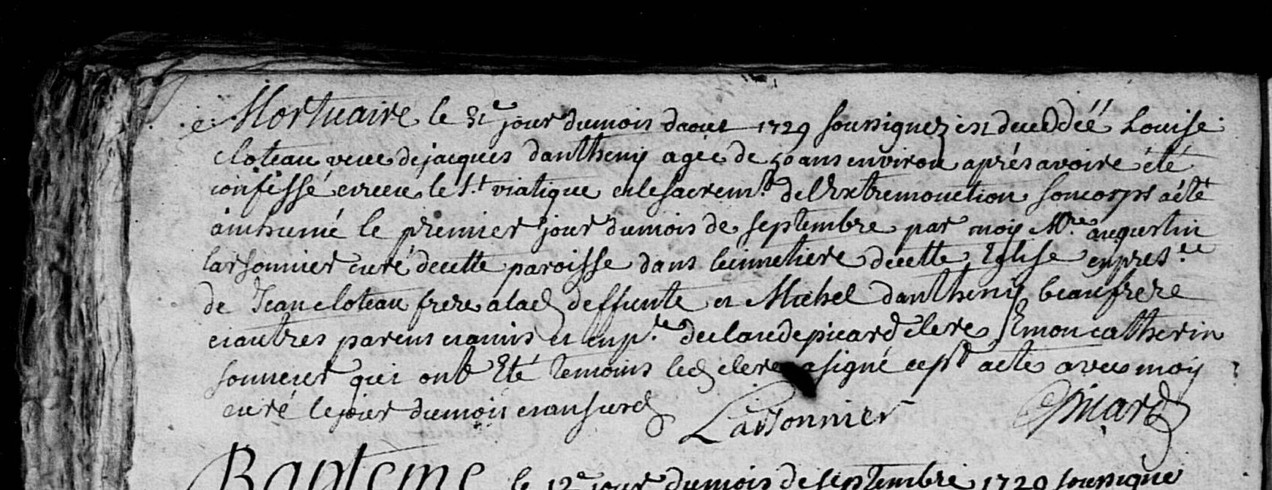 Mortuaire le 31e jour du mois daout 1729 soussignez est deceddéé Louise
cloteau veuve de jacques dantheny agée de 50 ans environ aprés avoire été
confessé et receu le St viatique et le sacremt de lExtremonction son corps a été
ainhumé le premier jour du mois de septembre par moy Mre augustin
larsonnier curé de cette paroisse dans le cimetiere de cette Eglise en presce
de Jean cloteau frere a lad deffunte et Michel dantheny beau frere
et autres parens et amis et en pce de claude picard clerc Simon catherin
sonneur qui ont Eté temoins led clerc a signé cept acte avec moy
curé le jour du mois et an surd Larsonnier CPicard
Bapteme le 12e jour du mois de septembre 1729 soussigne